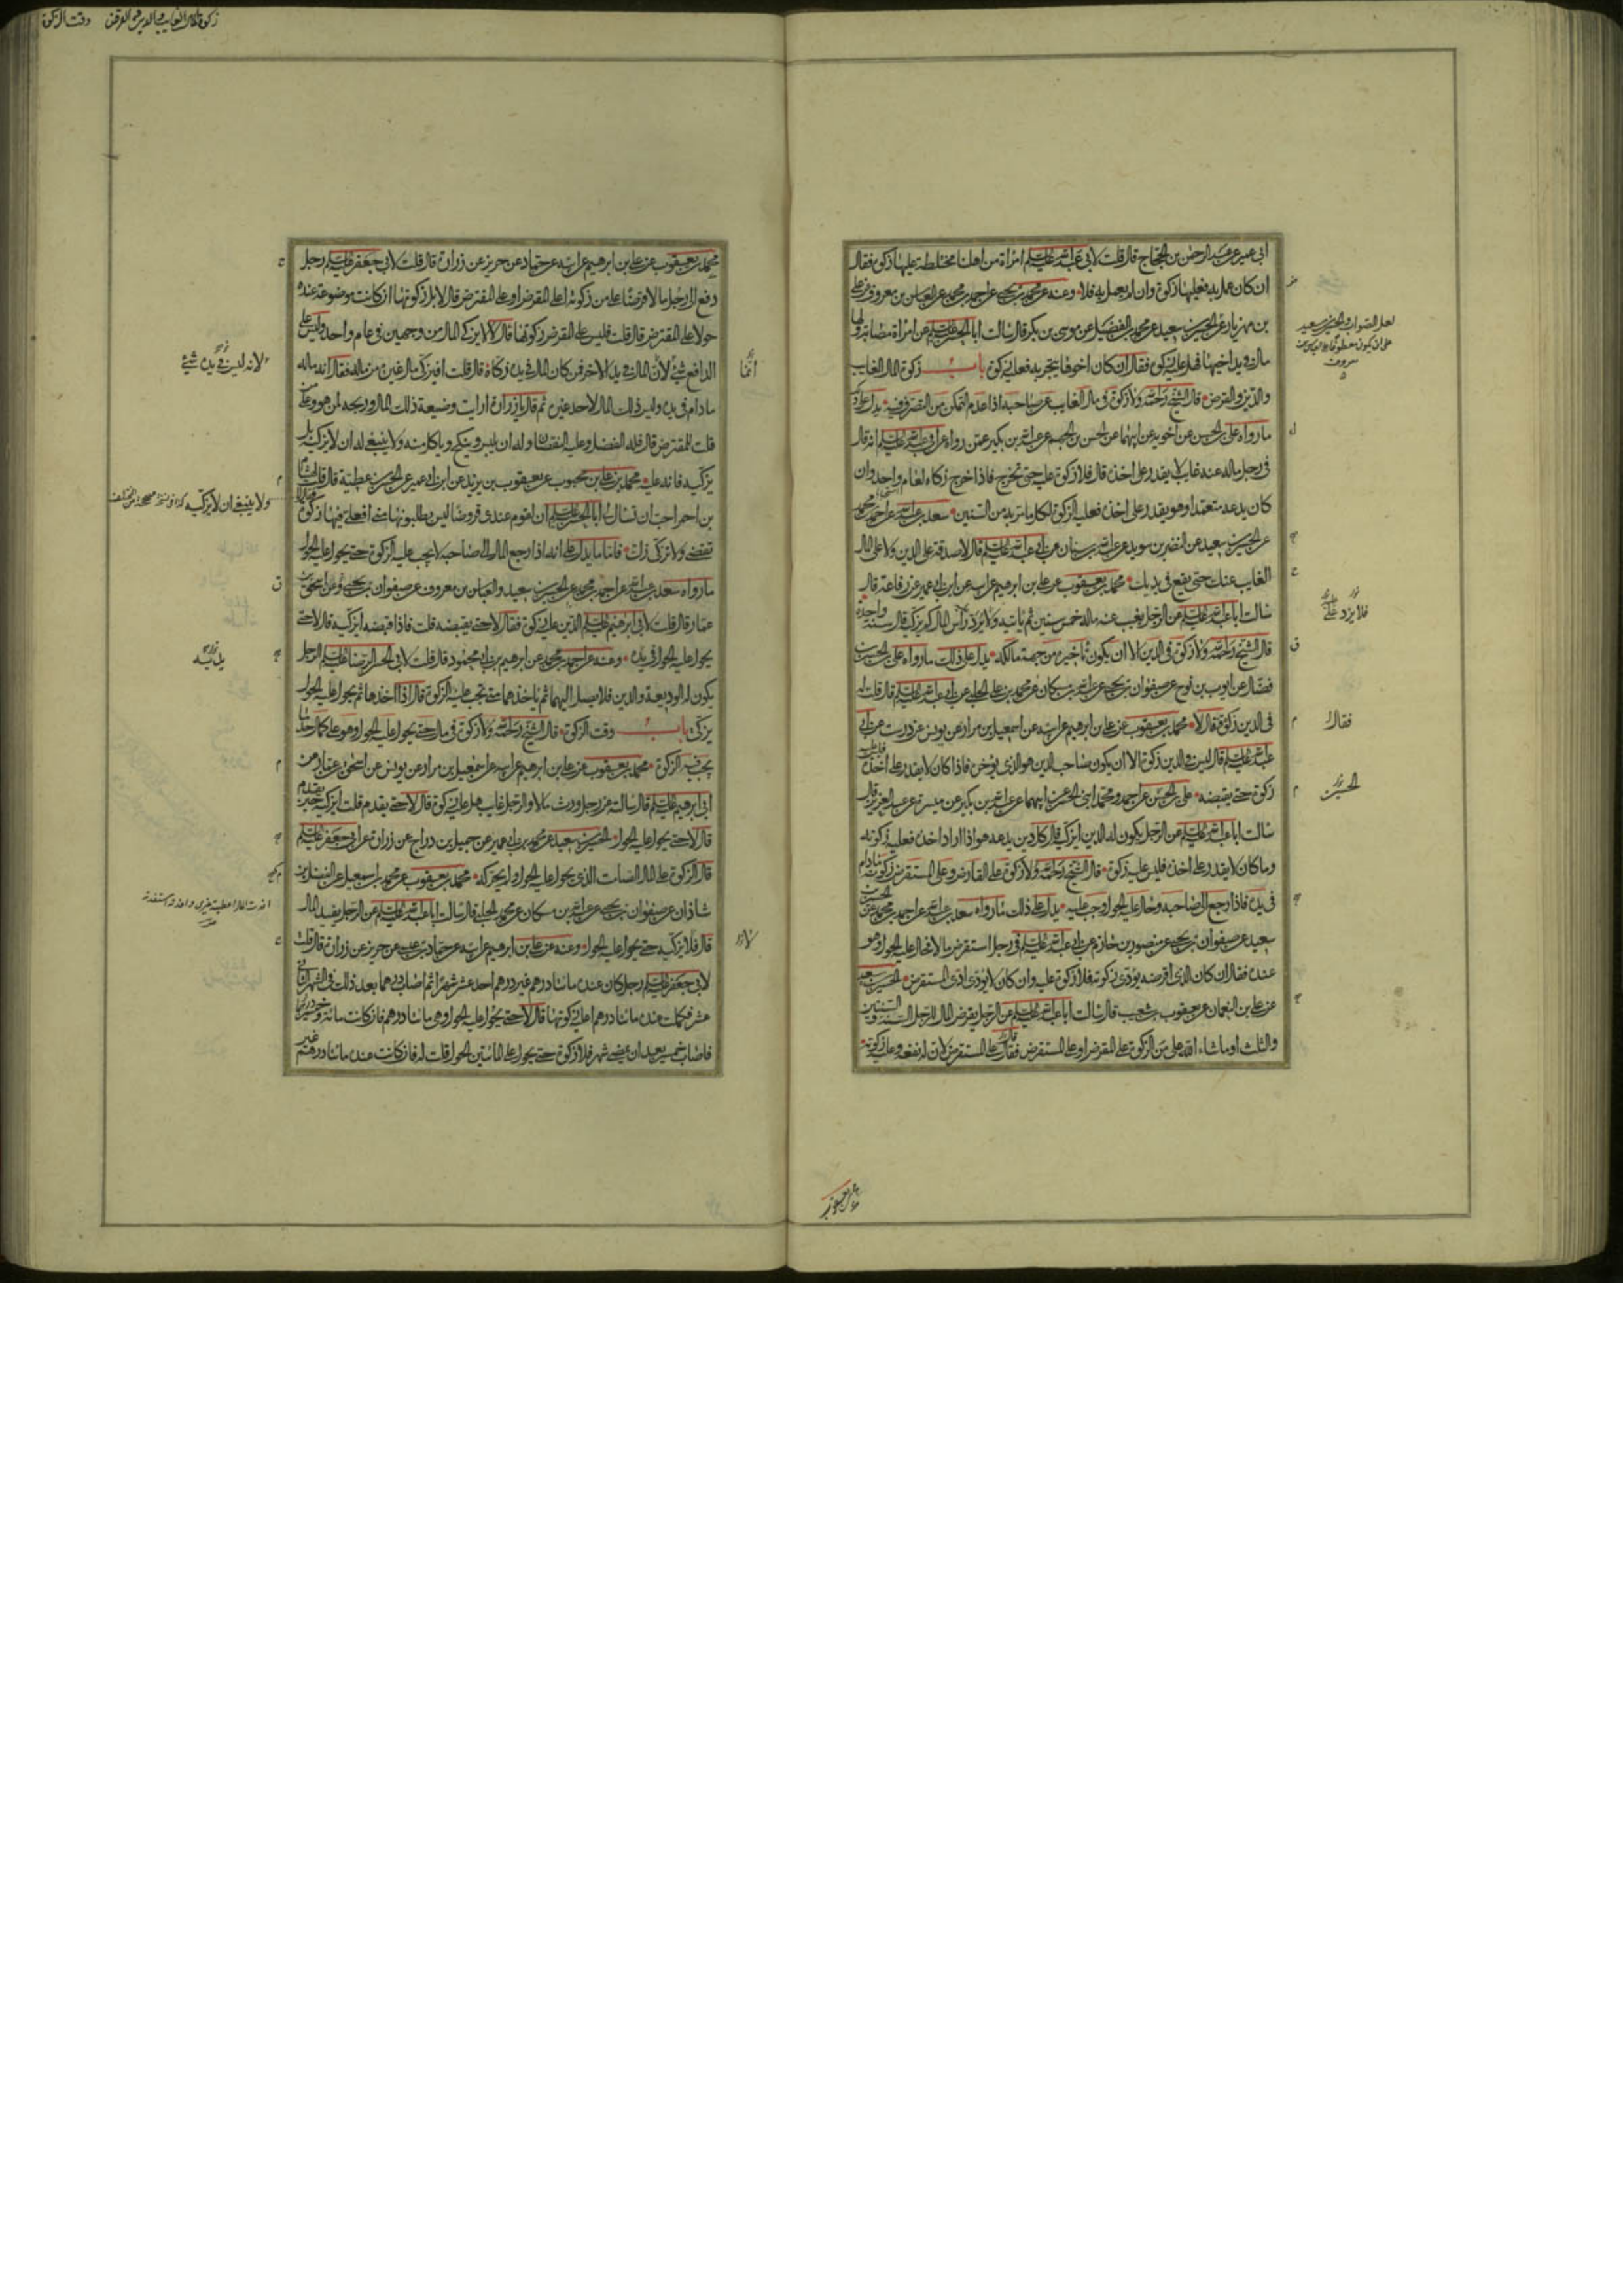 ابي عمير عن عبد الرحمن بن الحجاج قال قلت لابي عبد الله عليه السلم امراة من اهلنا مختلطة عليها زكوة فقال
ان كان عمل به فعليها زكوة وان لم يعمل به فلا وعنه عن محمد بن يحيى عن احمد بن محمد عن العباس بن معروف عن علي
بن مهزيار عن الحسين بن سعيد عن محمد بن الفضيل عن موسى بن بكر قال سالت ابا الحسن عليه السلم عن امراة مصابة ولها
مال في يد اخيها فهل عليه زكوة فقال ان كان اخوها يتجر به فعليه زكوة باب زكوة المال الغايب
والدين والقرض قال الشيخ رحمه الله ولا زكوة في مال الغايب عن صاحبه اذا عدم التمكن من التصرف فيه يدل على ذلك
ما رواه علي بن الحسن عن اخويه عن ابيهما عن الحسن بن الجهم عن عبد الله بن بكير عمن رواه عن ابي عبد الله عليه السلم انه قال
في رجل ماله عنه غايب لا يقدر على اخذه قال فلا زكوة عليه حتى يخرج فاذا خرج زكاه لعام واحد وان
كان يدعه متعمدا وهو يقدر على اخذه فعليه الزكوة لكل ما مر به من السنين سعد بن عبد الله عن احمد بن محمد
عن الحسين بن سعيد عن النضر بن سويد عن عبد الله بن سنان عن ابي عبد الله عليه السلم قال لا صدقة على الدين ولا على المال
الغايب عنك حتى يقع في يديك محمد بن يعقوب عن علي بن ابرهيم عن ابيه عن ابن ابي عمير عن رفاعة قال
سالت ابا عبد الله عليه السلم عن الرجل يغيب عنه ماله خمس سنين ثم ياتيه ولا يرد راس المال كم يزكيه قال سنة واحدة
قال الشيخ رحمه الله ولا زكوة في الدين الا ان يكون تاخيره من جهة مالكه يدل على ذلك ما رواه علي بن الحسن
فضال عن ايوب بن نوح عن صفوان بن يحيى عن عبد الله بن مسكان عن محمد بن علي الحلبي عن ابي عبد الله عليه السلم قال قلت له
في الدين زكوة فقال لا محمد بن يعقوب عن علي بن ابرهيم عن ابيه عن اسمعيل بن مرار عن يونس عن درست عن ابي
عبد الله عليه السلم قال ليس في الدين زكوة الا ان يكون صاحب الدين هو الذي يؤخره فاذا كان لا يقدر على اخذه فليس عليه
زكوة حتى يقبضه علي بن الحسن عن احمد ومحمد ابني الحسن عن ابيهما عن عبد الله بن بكير عن ميسرة عن عبد العزيز قال
سالت ابا عبد الله عليه السلم عن الرجل يكون له الدين ايزكيه قال كل دين يدعه هو اذا اراد اخذه فعليه زكوته
وما كان لا يقدر على اخذه فليس عليه زكوة قال الشيخ رحمه الله ولا زكوة على القارض وعلى المستقرض زكوته ما دام
في يده فاذا رجع الى صاحبه وحال عليه الحول وجب عليه يدل على ذلك ما رواه سعد بن عبد الله عن احمد بن محمد عن الحسين بن
سعيد عن صفوان بن يحيى عن منصور بن حازم عن ابي عبد الله عليه السلم في رجل استقرض مالا فحال عليه الحول وهو
عنده فقال ان كان الذي اقرضه يؤدي زكوته فلا زكوة عليه وان كان لا يؤدي ادى المستقرض الحسين بن سعيد
عن علي بن النعمان عن يعقوب بن شعيب قال سالت ابا عبد الله عليه السلم عن الرجل يقرض المال للرجل السنة والسنتين
والثلث او ما شاء الله على من الزكوة على المقرض او على المستقرض فقال على المستقرض لان له نفعه وعليه زكوته
لعل الصواب والحسين بن سعيد
على ان يكون معطوفا على العباس بن
معروف
فلا يرد
فقال
الحسين
محمد بن يعقوب
زكوة المال الغايب والدين والقرض وقت الزكوة
محمد بن يعقوب عن علي بن ابرهيم عن ابيه عن حماد عن حريز عن زرارة قال قلت لابي جعفر عليه السلم رجل
دفع الى رجل مالا قرضا على من زكوته اعلى المقرض او على المقترض قال لا بل زكوتها ان كانت موضوعة عنده
حولا على المقترض قال قلت فليس على المقرض زكوتها قال لا لا يزكى المال من وجهين في عام واحد وليس على
الدافع شئ لان المال في يد الاخر فمن كان المال في يده زكاه قال قلت افيزكي مال غيره من ماله فقال انه ماله
ما دام في يده وليس ذلك المال لاحد غيره ثم قال يا زرارة ارايت وضيعة ذلك المال وربحه لمن هو وعلى من
قلت للمقترض قال فله الفضل وعليه النقصان وله ان يلبس وينكح وياكل منه ولا ينبغي له ان لا يزكيه بل
يزكيه فانه عليه محمد بن علي بن محبوب عن يعقوب بن يزيد عن ابن ابي عمير عن الحسن بن عطية قال قلت لهشام
بن احمر احب ان تسال لي ابا الحسن عليه السلم ان لقوم عندي قروضا ليس يطلبونها مني افعلي فيها زكوة
تقضي ولا تزكي زك فاما ما يدل على انه اذا رجع المال الى صاحبه لا يجب عليه الزكوة حتى يحول عليه الحول
ما رواه سعد بن عبد الله عن احمد بن محمد عن الحسين بن سعيد والعباس بن معروف عن صفوان بن يحيى عن اسحق بن
عمار قال قلت لابي ابرهيم عليه السلم الدين عليه زكوة فقال لا حتى يقبضه قلت فاذا قبضه ايزكيه قال لا حتى
يحول عليه الحول في يده وعنه عن احمد بن محمد عن ابرهيم بن ابي محمود قال قلت لابي الحسن الرضا عليه السلم الرجل
يكون له الوديعة والدين فلا يصل اليهما ثم ياخذهما متى يجب عليه الزكوة قال اذا اخذها ثم يحول عليه الحول
يزكي باب وقت الزكوة قال الشيخ رحمه الله ولا زكوة في مال حتى يحول عليه الحول وهو على كمال حد ما
يجب فيه الزكوة محمد بن يعقوب عن علي بن ابرهيم عن ابيه عن اسمعيل بن مرار عن يونس عن اسحق بن عمار عن
ابي ابرهيم عليه السلم قال سالته عن رجل ورث مالا والرجل غايب هل عليه زكوة قال لا حتى يقدم قلت ايزكيه حين يقدم
قال لا حتى يحول عليه الحول الحسين بن سعيد عن محمد بن ابي عمير عن جميل بن دراج عن زرارة عن ابي جعفر عليه السلم
قال الزكوة على المال الصامت الذي يحول عليه الحول ولم يحركه محمد بن يعقوب عن محمد بن اسمعيل عن الفضل بن
شاذان عن صفوان بن يحيى عن عبد الله بن مسكان عن محمد الحلبي قال سالت ابا عبد الله عليه السلم عن الرجل يفيد المال
قال فلا يزكيه حتى يحول عليه الحول وعنه عن علي بن ابرهيم عن ابيه عن حماد بن عيسى عن حريز عن زرارة قال قلت
لابي جعفر عليه السلم رجل كان عنده مائتا درهم غير درهم احد عشر شهرا ثم اصاب درهما بعد ذلك في الشهر الثاني
عشر فكملت عنده مائتا درهم اعليه زكوتها قال لا حتى يحول عليه الحول وهي مائتا درهم فان كانت مائة وخمسين درهما
فاصاب خمسين بعد ان يمضي شهر فلا زكوة حتى يحول على المائتين الحول قلت له فان كانت عنده مائتا درهم غير
انما
لانه ليس في يده شئ
ولا ينبغي ان لا يزكيه
يديه
لا